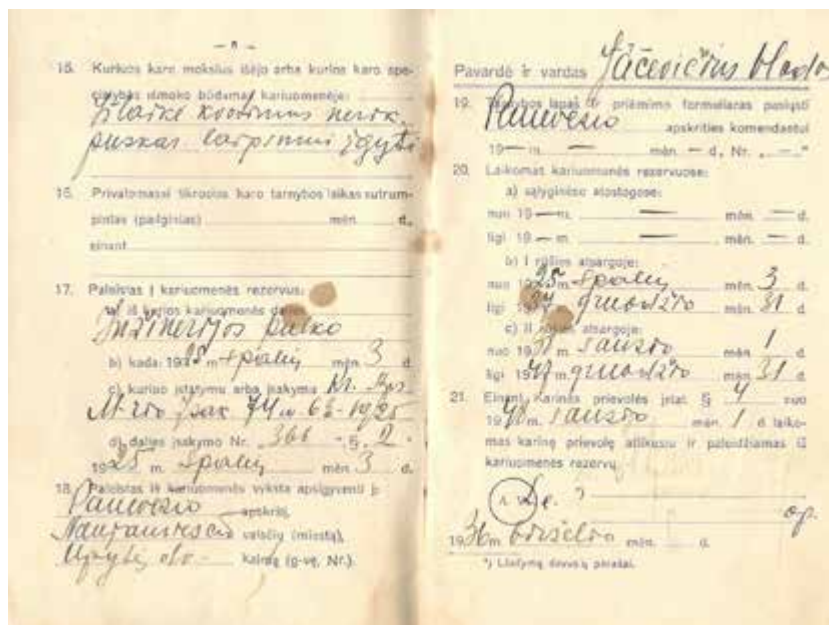 — 8 —
15. Kuriuos karo mokslus išėjo arba kurios karo spe-
cialybės išmoko būdamas kariuomenėje:
Išlaikė
puskar. laipsniui įgyti
16. Privalomasai tikrosios karo tarnybos laikas sutrum-
pintas (pailgintas) mėn. d.,
einant
17. Paleistas į kariuomenės rezervus:
a) iš kurios kariuomenės dalies
Inžinerijos pulko
b) kada: 1925 m. spalių mėn. 3 d.
c) kuriuo įstatymu arba įsakymu Kr. Aps.
M-rio Įsak. 74 1925
d) dalies įsakymo Nr. 366 - §. 2.
1925 m. spalių mėn. 3 d.
18. Paleistas iš kariuomenės vyksta apsigyventi į:
Panevėžio apskritį,
valsčių (miestą),
Upytės kaimą (g-vę, Nr.).
Pavardė ir vardas Jacevičius Vlado
19. Tarnybos lapas ir priėmimo formuliaras pasiųsti
Panevėžio apskrities komendantui
19 — m. — mėn. — d. Nr. „ — "
20. Laikomas kariuomenės rezervuose:
a) sąlyginėse atostogose:
nuo 19 — m. — mėn. — d.
ligi 19 — m. — mėn. — d.
b) I rūšies atsargoje:
nuo 1925 m. spalių mėn. 3 d.
ligi 1937 m. gruodžio mėn. 31 d.
c) II rūšies atsargoje:
nuo 1938 m. sausio mėn. 1 d.
ligi 1947 m. gruodžio mėn. 31 d.
21. Einant Karinės prievolės įstat. § 4 nuo
1948 m. sausio mėn. 1 d. laiko-
mas karinę prievolę atlikusiu ir paleidžiamas iš
kariuomenės rezervų
1936 m. birželio mėn. d.
*) Liudymą davusių parašai.